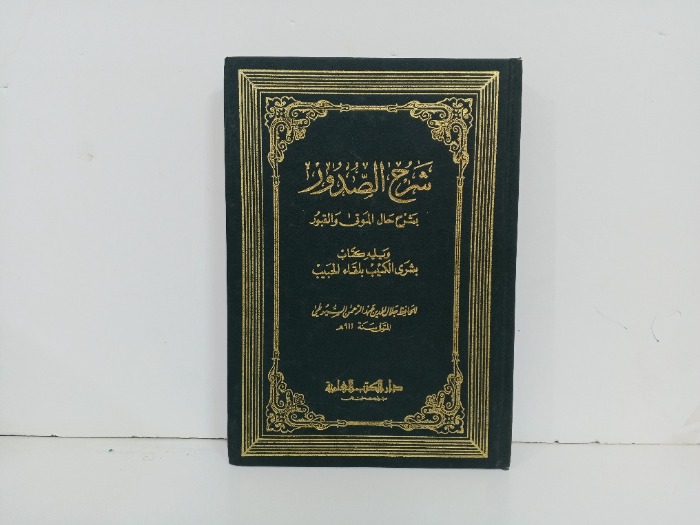 شَرْحُ الصُّدُورْ
بشَرح حَال الموَتى وَالقبُور
وَيليه كتَاب
بشرَى الكئيب بلقَاء الحَبيب
للحَافظ جلال الدين عَبد الرحمن السيوطي
المتوفى سَنة ٩١١ هـ
دار الكتب العلمية